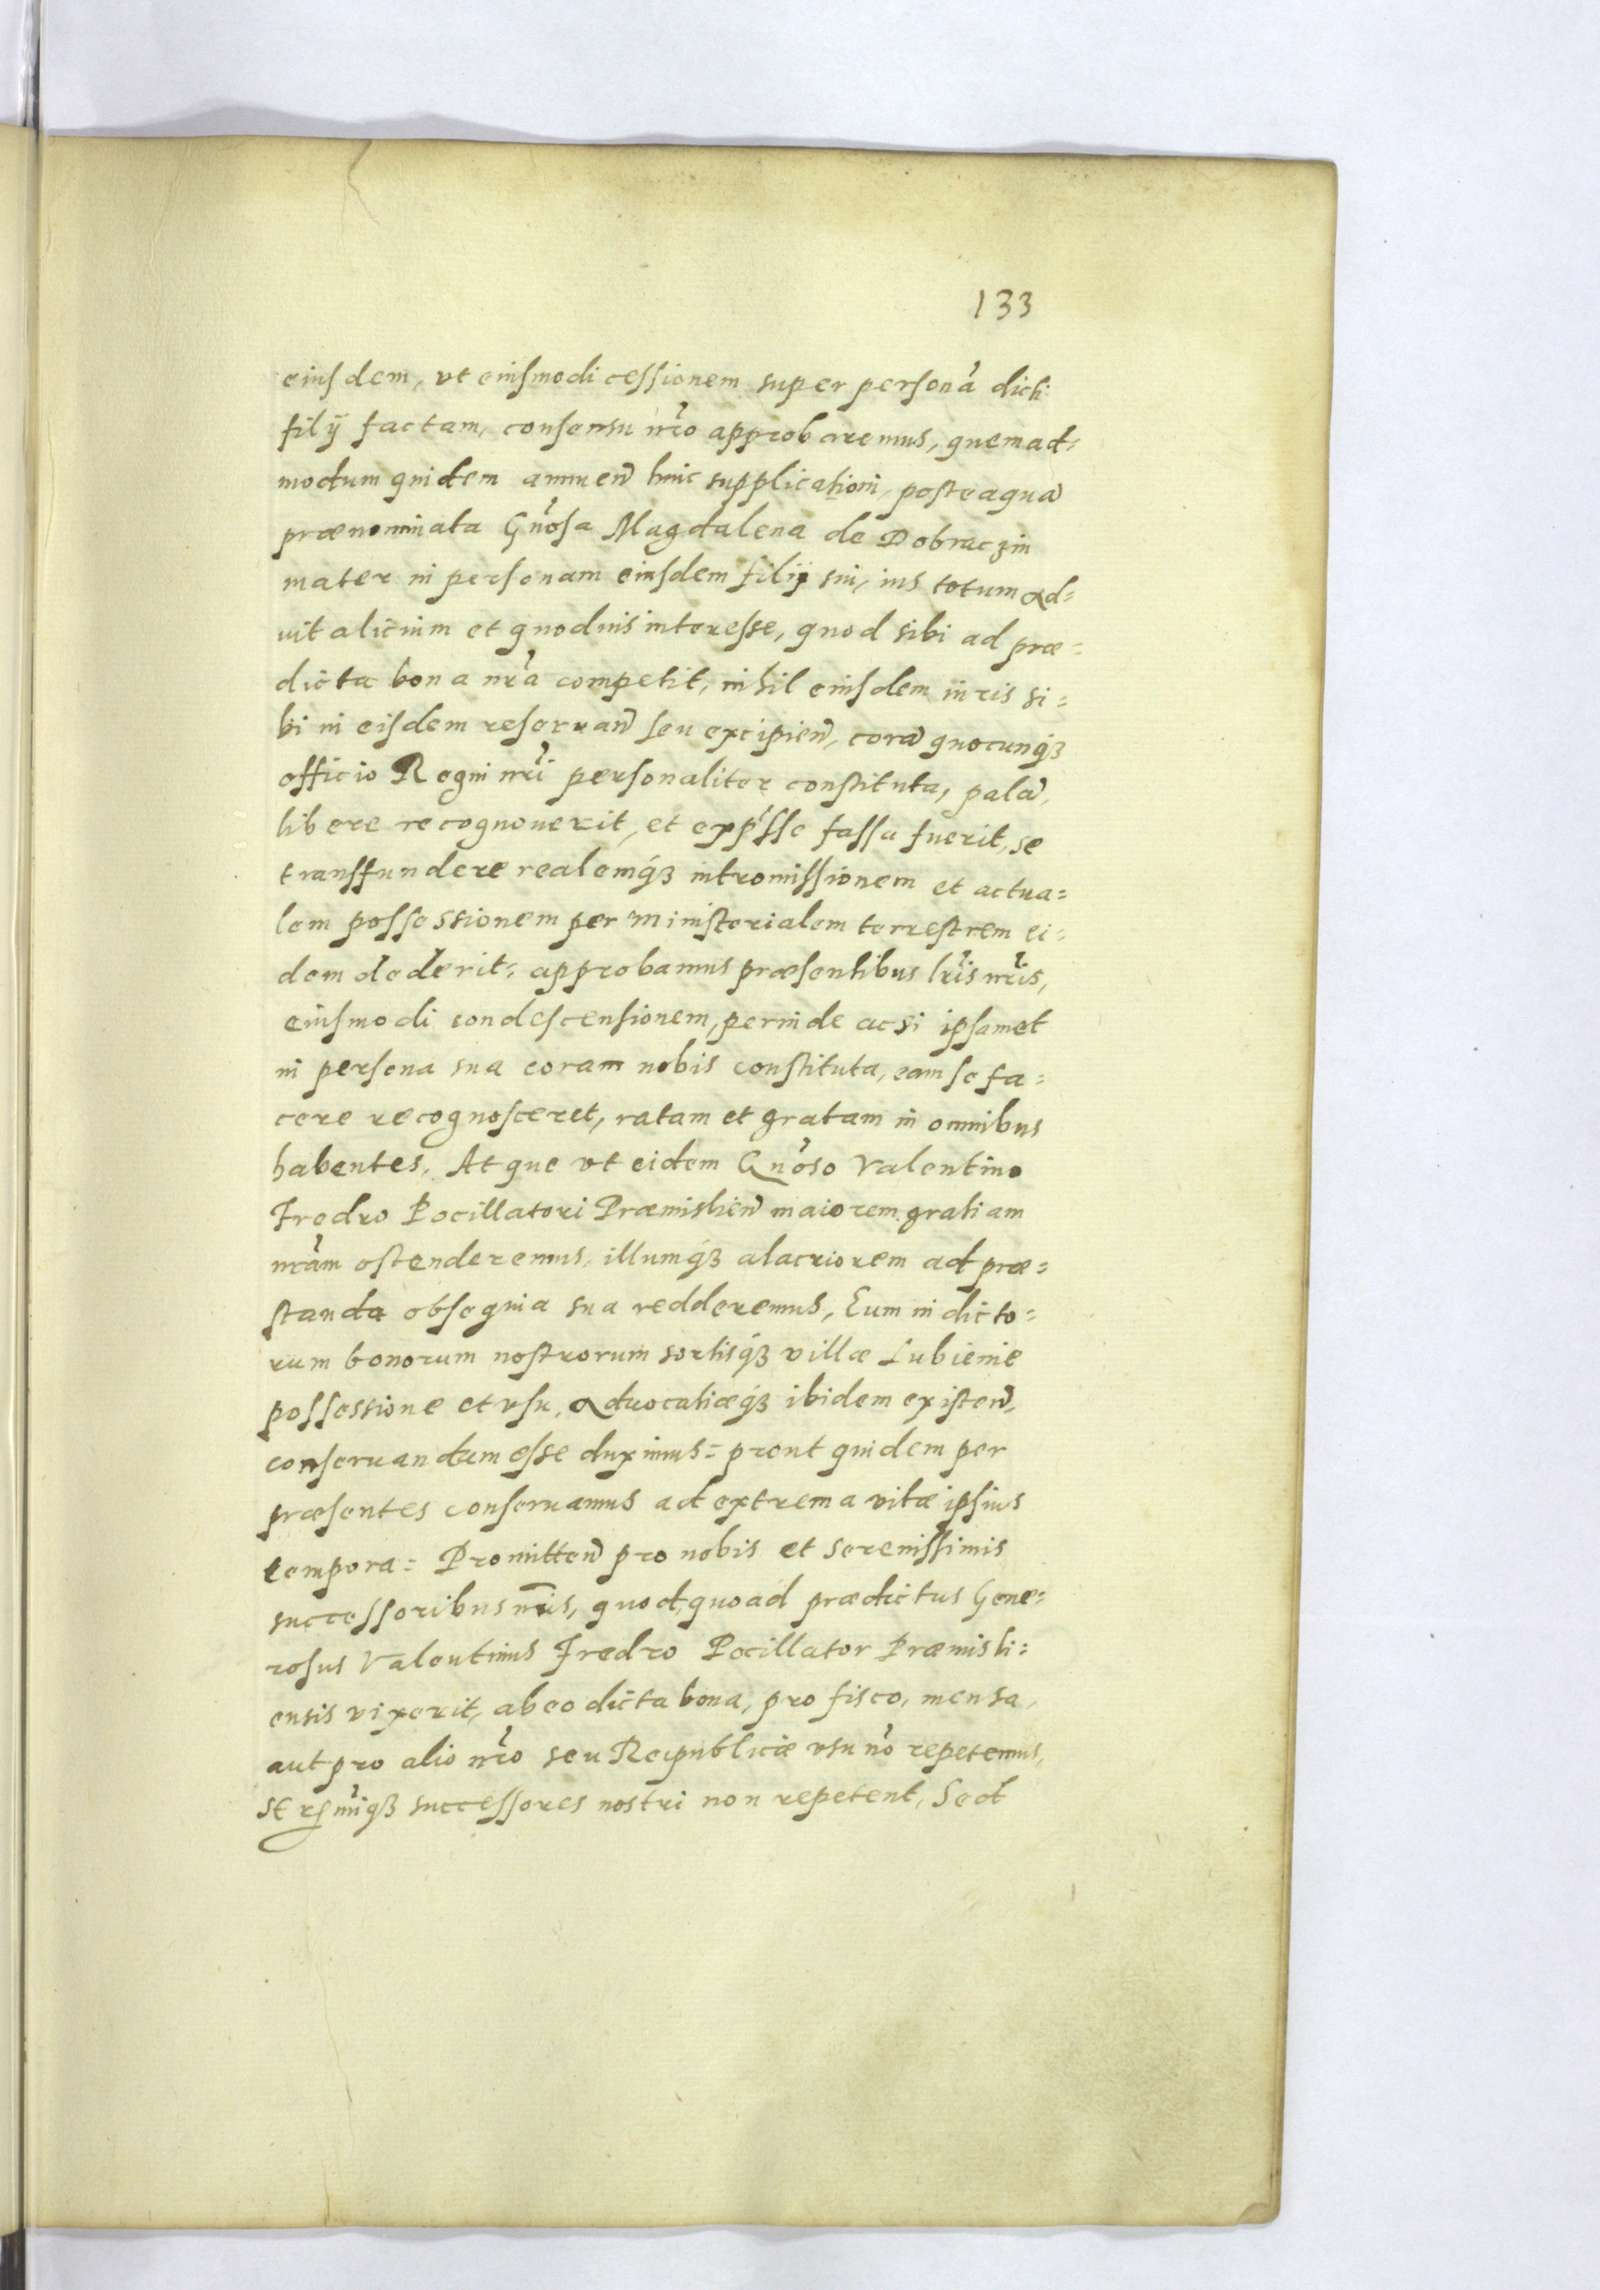 133
eiusdem, vt eiusmodi cessionem super personā dicti
filij factam, consensu nr̃o approbaremus, quemad=
modum quidem annuen̄ huic supplicationi, posteaquā
prænominata Gn̄osa Magdalena de Dobraczin
mater in personam eiusdem filij sui, ius totum ad=
uitalitium et quoduis interesse, quod sibi ad præ=
dicta bona nr̃a competit, nihil eiusdem iuris si=
bi in eisdem reseruan̄ seu excipien̄, corā quocunq3
officio Regni nr̃i personaliter constituta, palā,
libere recognouerit, et exp̄sse fassa fuerit, se
transfundere realemq3 intromissionem et actua=
lem possessionem per ministerialem terrestrem ei=
dem dederit: approbamus præsentibus lr̃is nr̃is,
eiusmodi condescensionem, perinde ac si ipsamet
in persona sua coram nobis constituta, eam se fa=
cere recognosceret, ratam et gratam in omnibus
habentes. Atque vt eidem Gn̄oso Valentino
Fredro Pocillatori Præmislien̄ maiorem gratiam
nr̃am ostenderemus, illumq3 alacriorem ad præ=
standa obsequia sua redderemus, Eum in dicto=
rum bonorum nostrorum sortisq3 villæ Lubienie
possessione et vsu, aduocatiæq3 ibidem existen̄,
conseruandum esse duximus: prout quidem per
præsentes conseruamus ad extrema vitæ ipsius
tempora: Promitten̄ pro nobis et Serenissimis
successoribus nr̃is, quod, quoad prædictus Gene=
rosus Valentinus Fredro Pocillator Præmisli=
ensis vixerit, ab eo dicta bona, pro fisco, mensa,
aut pro alio nr̃o seu Reipublicæ vsu nō repetemus,
Serm̄iq3 successores nostri non repetent, Sed